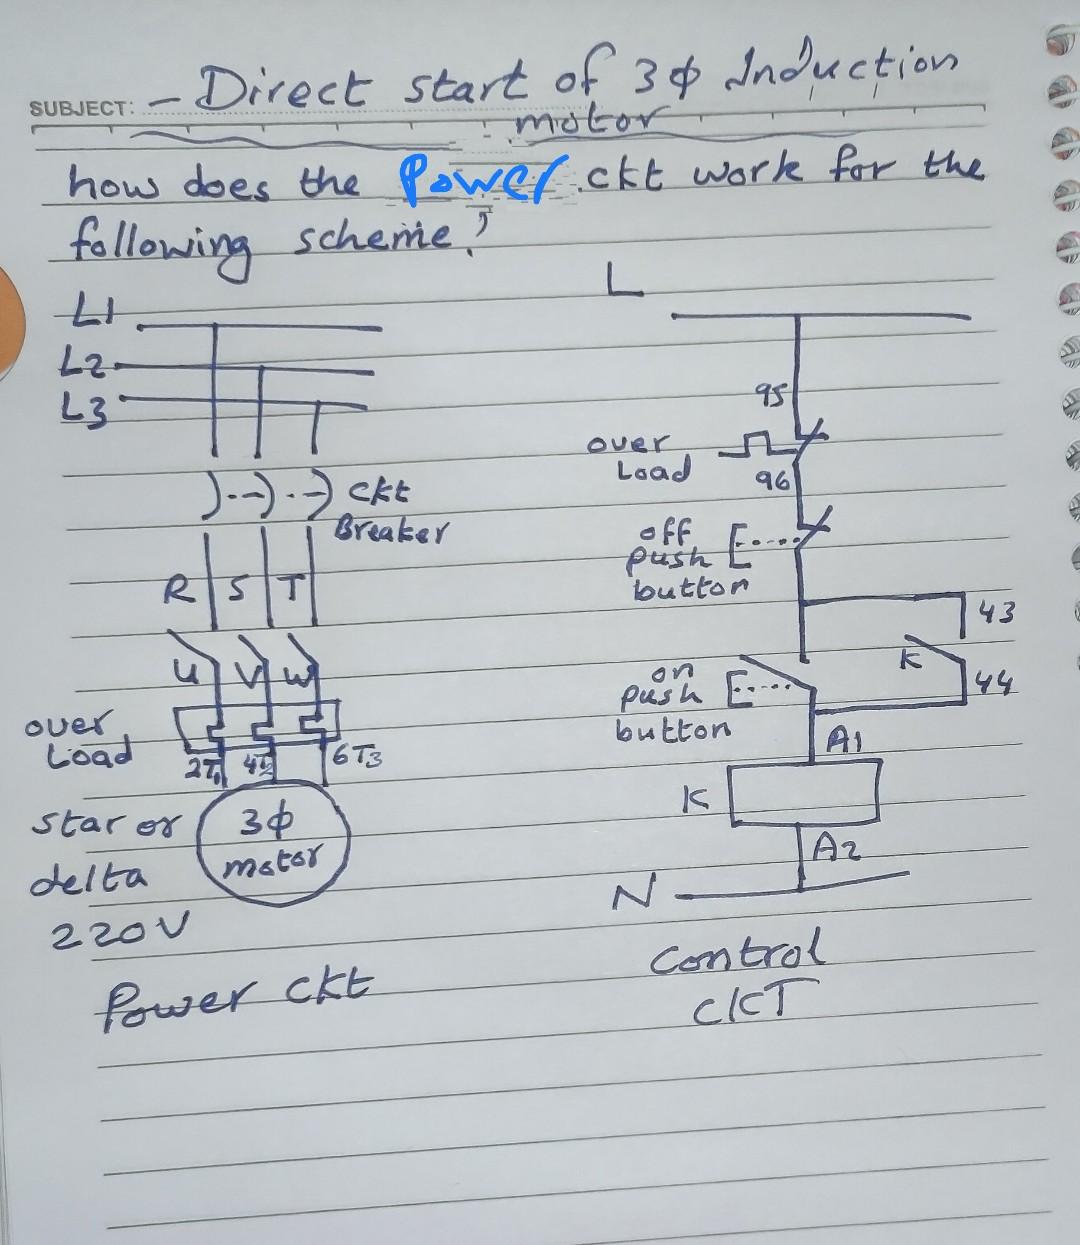 - Direct start of 3φ Induction
SUBJECT:
motor
how does the Power ckt work for the
following scheme?
L1
L2
L3
ckt
Breaker
R S T
U V W
over
Load
2T1 4T2 6T3
star or
delta
220V
3φ
motor
Power ckt
L
95
over
Load
96
off
push
button
43
K
44
on
push
button
A1
K
A2
N
Control
CKT